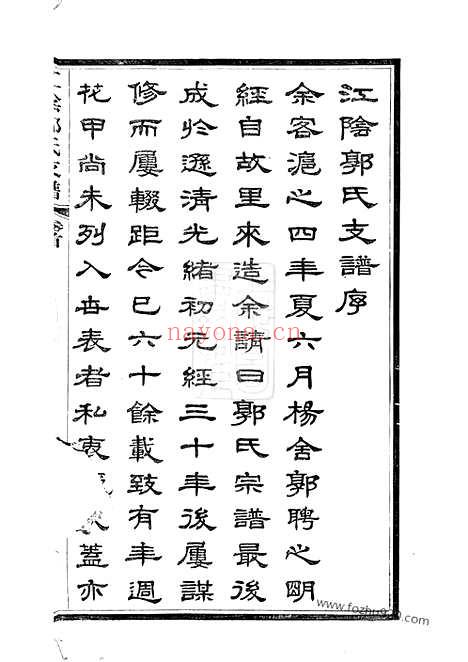 江陰郭氏支譜序
余客滬之四年夏六月楊舍郭聘之明
經自故里來造余請曰郭氏宗譜最後
成於遜清光緒初元經三十年後屢謀
修而屢輟距今已六十餘載致有年週
花甲尚未列入世表者私衷蓋亦
氏支譜
nayona.cn
www.fozhu920.com